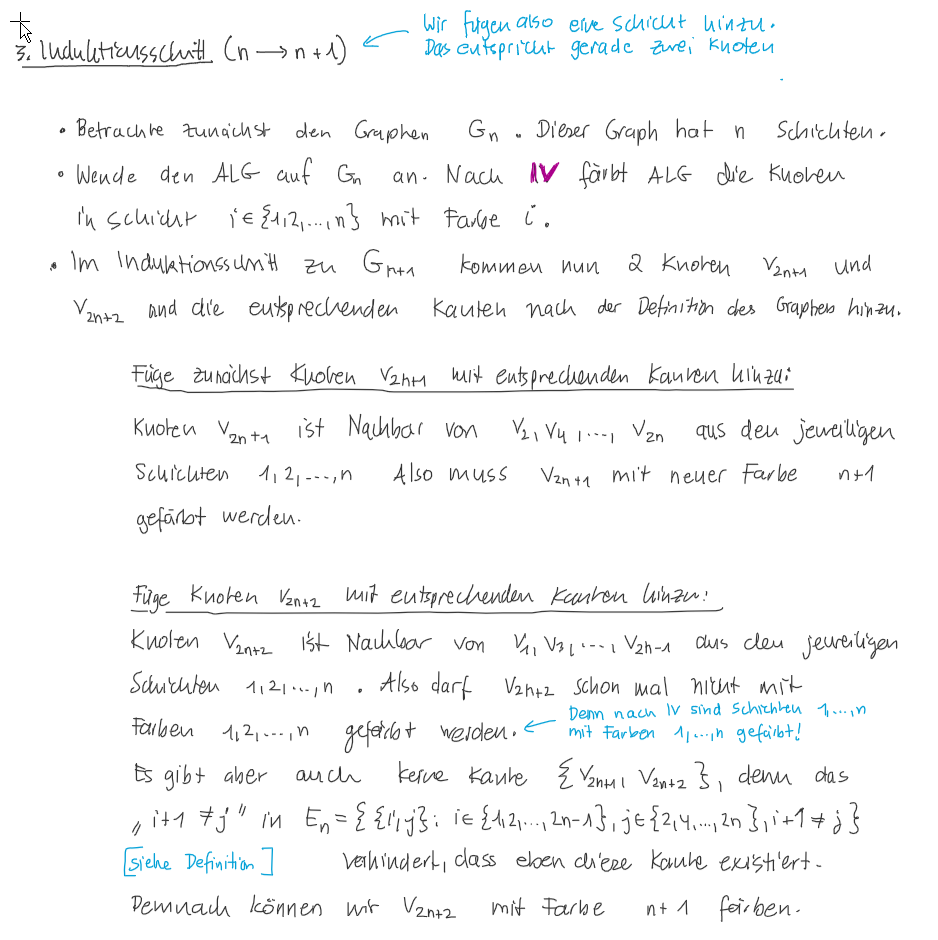 Wir fügen also eine Schicht hinzu.
3. Induktionsschritt (n → n+1)
Das entspricht gerade zwei Knoten
• Betrachte zunächst den Graphen Gₙ. Dieser Graph hat n Schichten.
• Wende den ALG auf Gₙ an. Nach IV färbt ALG die Knoten
in Schicht i∈{1,2,...,n} mit Farbe i.
• Im Induktionsschritt zu Gₙ₊₁ kommen nun 2 Knoten V₂ₙ₊₁ und
V₂ₙ₊₂ und die entsprechenden Kanten nach der Definition des Graphen hinzu.
Füge zunächst Knoten V₂ₙ₊₁ mit entsprechenden Kanten hinzu:
Knoten V₂ₙ₊₁ ist Nachbar von V₂, V₄, ..., V₂ₙ aus den jeweiligen
Schichten 1,2,...,n Also muss V₂ₙ₊₁ mit neuer Farbe n+1
gefärbt werden.
Füge Knoten V₂ₙ₊₂ mit entsprechenden Kanten hinzu:
Knoten V₂ₙ₊₂ ist Nachbar von V₁, V₃, ..., V₂ₙ₋₁ aus den jeweiligen
Schichten 1,2,...,n. Also darf V₂ₙ₊₂ schon mal nicht mit
Farben 1,2,...,n gefärbt werden. ← Denn nach IV sind Schichten 1,...,n
mit Farben 1,...,n gefärbt!
Es gibt aber auch keine Kante {V₂ₙ₊₁, V₂ₙ₊₂}, denn das
„i+1 ≠ j" in Eₙ = {{i,j}: i∈{1,2,...,2n-1}, j∈{2,4,...,2n}, i+1 ≠ j}
[siehe Definition] verhindert, dass eben diese Kante existiert.
Demnach können wir V₂ₙ₊₂ mit Farbe n+1 färben.